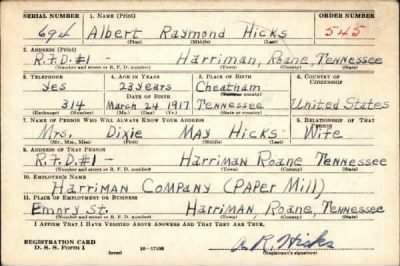 SERIAL NUMBER 1. NAME (Print) ORDER NUMBER
694 Albert Raymond Hicks 545
(First) (Middle) (Last)
2. ADDRESS (Print)
R.F.D.#1 - Harriman, Roane, Tennessee
(Number and street or R. F. D. number) (Town) (County) (State)
3. TELEPHONE 4. AGE IN YEARS 5. PLACE OF BIRTH 6. COUNTRY OF CITIZENSHIP
Yes 23 years Cheatham
DATE OF BIRTH (Town or county)
314 March 24 1917 Tennessee United States
(Exchange) (Number) (Mo.) (Day) (Yr.) (State or country)
7. NAME OF PERSON WHO WILL ALWAYS KNOW YOUR ADDRESS 8. RELATIONSHIP OF THAT PERSON
Mrs. Dixie May Hicks Wife
(Mr., Mrs., Miss) (First) (Middle) (Last)
9. ADDRESS OF THAT PERSON
R.F.D.#1 - Harriman Roane Tennessee
(Number and street or R. F. D. number) (Town) (County) (State)
10. EMPLOYER'S NAME
Harriman Company (Paper Mill)
11. PLACE OF EMPLOYMENT OR BUSINESS
Emory St. Harriman, Roane, Tennessee
(Number and street or R. F. D. number) (Town) (County) (State)
I AFFIRM THAT I HAVE VERIFIED ABOVE ANSWERS AND THAT THEY ARE TRUE.
REGISTRATION CARD
D. S. S. Form 1 16-17106 A. R. Hicks
(Registrant's signature)